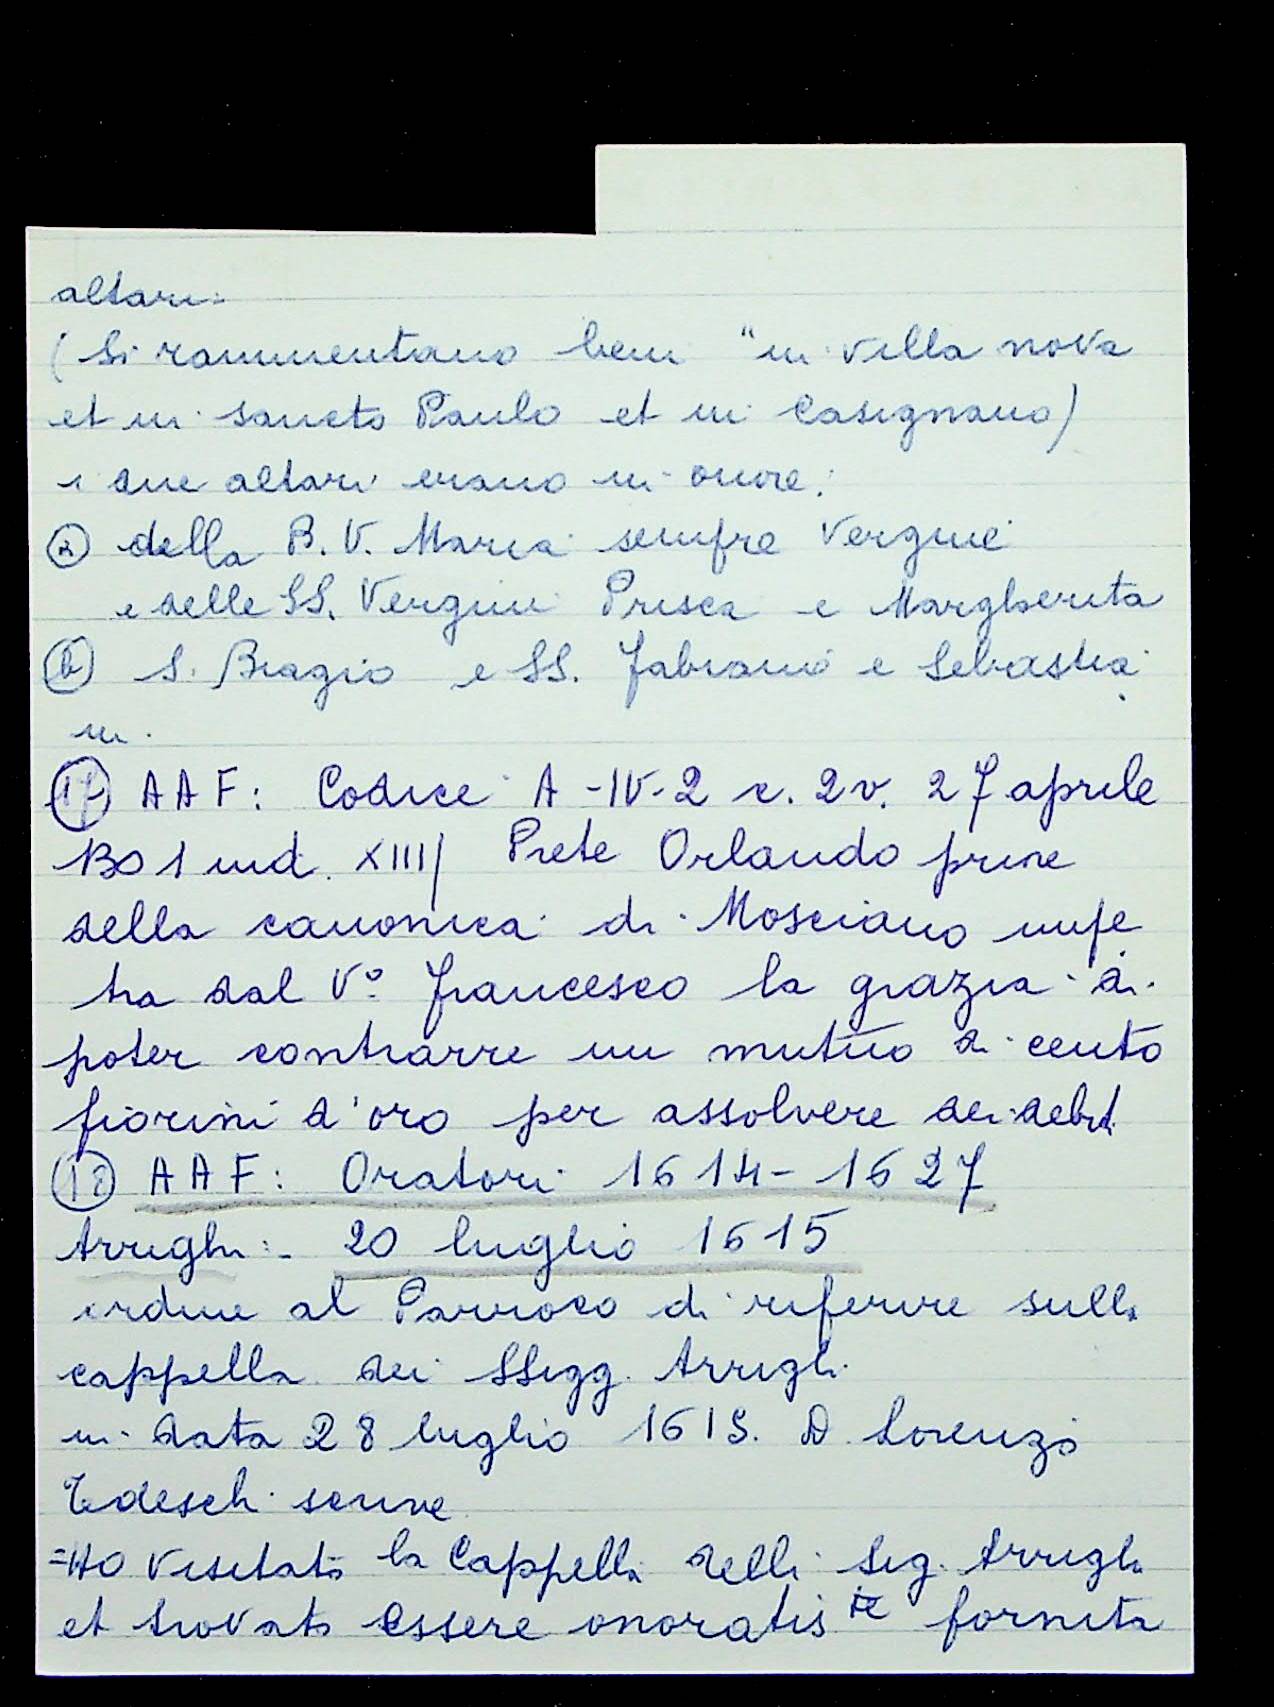 altari:
(Si rammentano beni "in villa nova
et in sancto Paulo et in Casignano)
i due altari erano in onore:
a) della B. V. Maria sempre Vergine
e delle SS. Vergini Prisca e Margherita
b) S. Biagio e SS. Fabiano e Sebastia
no.
17) AAF: Codice A-IV-2 c. 2v. 27 aprile
1301 ind. XIII/ Prete Orlando priore
della canonica di Mosciano impe
tra dal V° Francesco la grazia di
poter contrarre un mutuo di cento
fiorini d'oro per assolvere dei debiti
18) AAF: Oratori 1614-1627
Arrighi:- 20 luglio 1615
ordine al Parroco di riferire sulla
cappella dei SSigg. Arrighi.
in data 28 luglio 1615. D. Lorenzo
Tedeschi scrive
=Ho visitato la Cappella delli Sig. Arrighi
et trovato essere onoratis te fornita